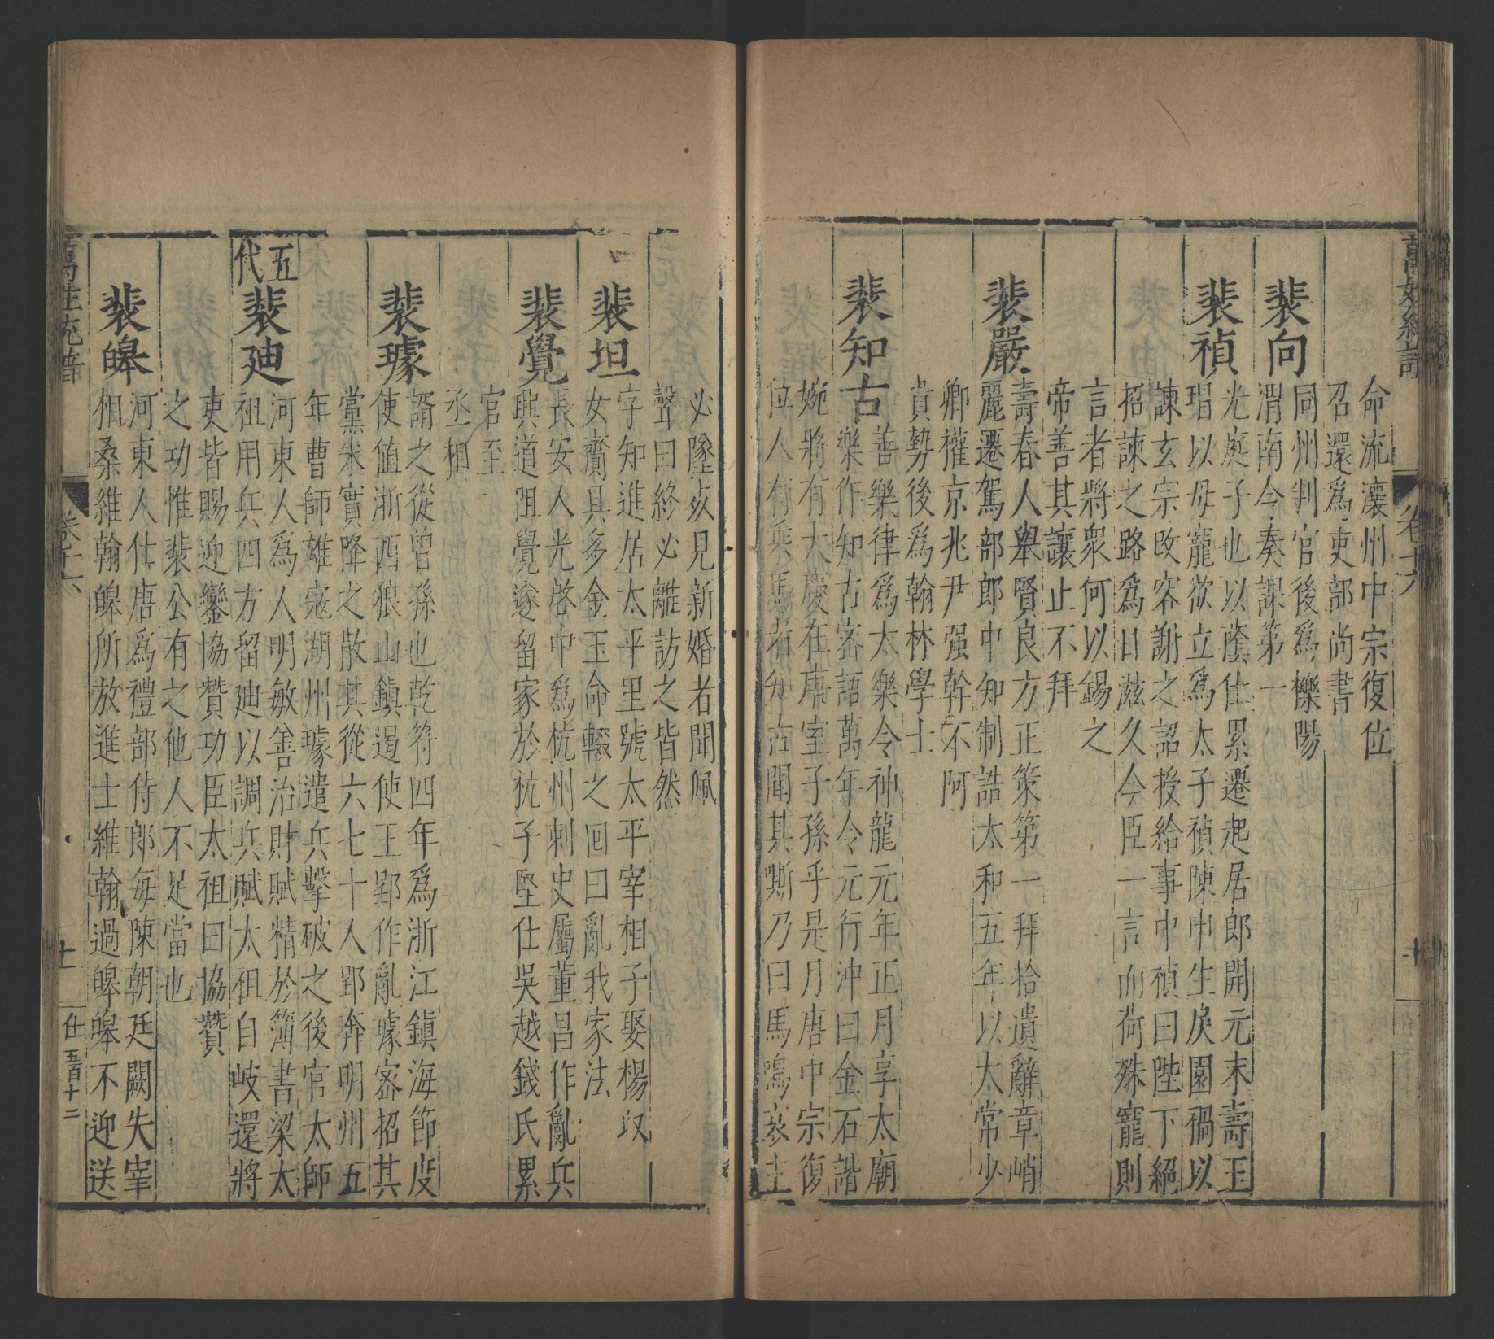 萬姓統譜
卷十六
十
命流瀼州中宗復位
召還爲吏部尚書
裴向
同州判官後爲櫟陽
渭南令奏課第一
裴禎
光庭子也以蔭仕累遷起居郎開元末壽王
瑁以母寵欲立爲太子禎陳申生戾園禍以
諫玄宗改容謝之詔授給事中禎曰陛下絕
招諫之路爲日滋久今臣一言而荷殊寵則
言者將衆何以錫之
帝善其讓止不拜
裴嚴
壽春人舉賢良方正策第一拜拾遺辭章峭
麗遷駕部郎中知制誥太和五年以太常少
卿權京兆尹强幹不阿
貴勢後爲翰林學士
裴知古
善樂律爲太樂令神龍元年正月享太廟
樂作知古密語萬年令元行沖曰金石諧
婉將有大慶在唐室子孫乎是月唐中宗復
位人有乘馬者知古聞其嘶乃曰馬鳴哀主
必墜妓見新婚者聞佩
聲曰終必離訪之皆然
裴坦
字知進居太平里號太平宰相子娶楊収
女齎具多金玉命輟之回曰亂我家法
裴覺
長安人光啓中爲杭州刺史屬董昌作亂兵
興道阻覺遂留家於杭子堅仕吳越錢氏累
官至
丞相
裴璩
諝之從曾孫也乾符四年爲浙江鎮海節度
使値浙西狼山鎮遏使王郢作亂璩密招其
黨朱實降之散其從六七十人郢奔明州五
年曹師雄寇湖州璩遣兵擊破之後官太師
五代
裴迪
河東人爲人明敏善治財賦精於簿書梁太
祖用兵四方留迪以調兵賦太祖自岐還將
吏皆賜迎鑾協贊功臣太祖曰協贊
之功惟裴公有之他人不足當也
裴皞
河東人仕唐爲禮部侍郎每陳朝廷闕失宰
相桑維翰皞所放進士維翰過皞皞不迎送
萬姓統譜
卷十六
十一
仕五百十二